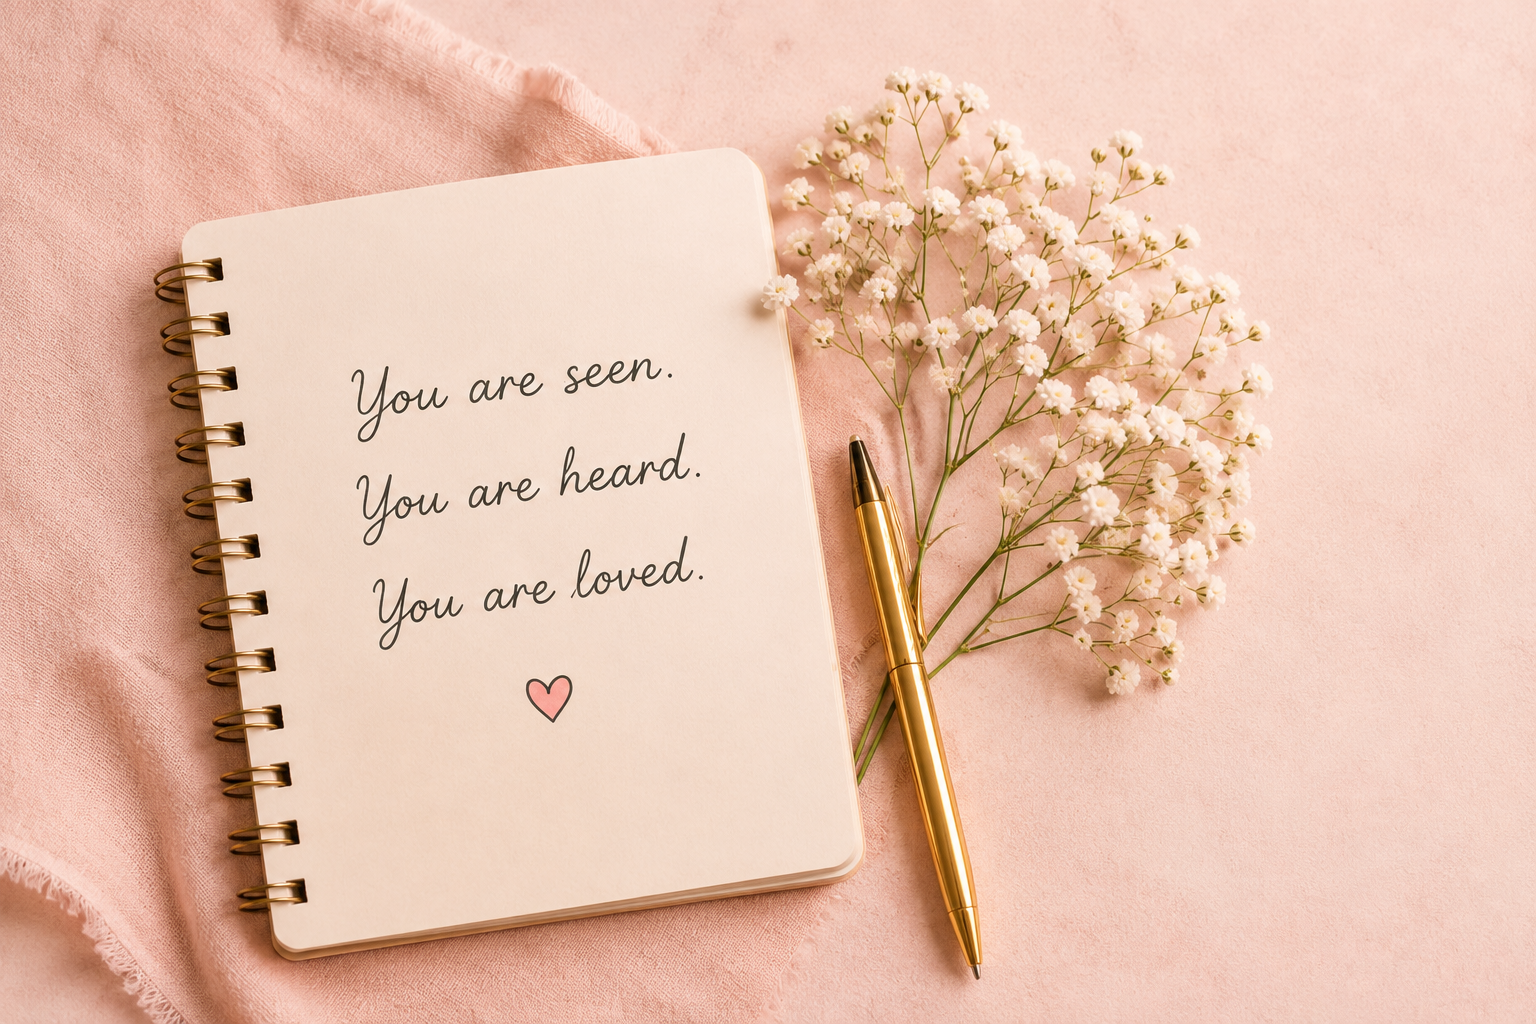 You are seen.
You are heard.
You are loved.